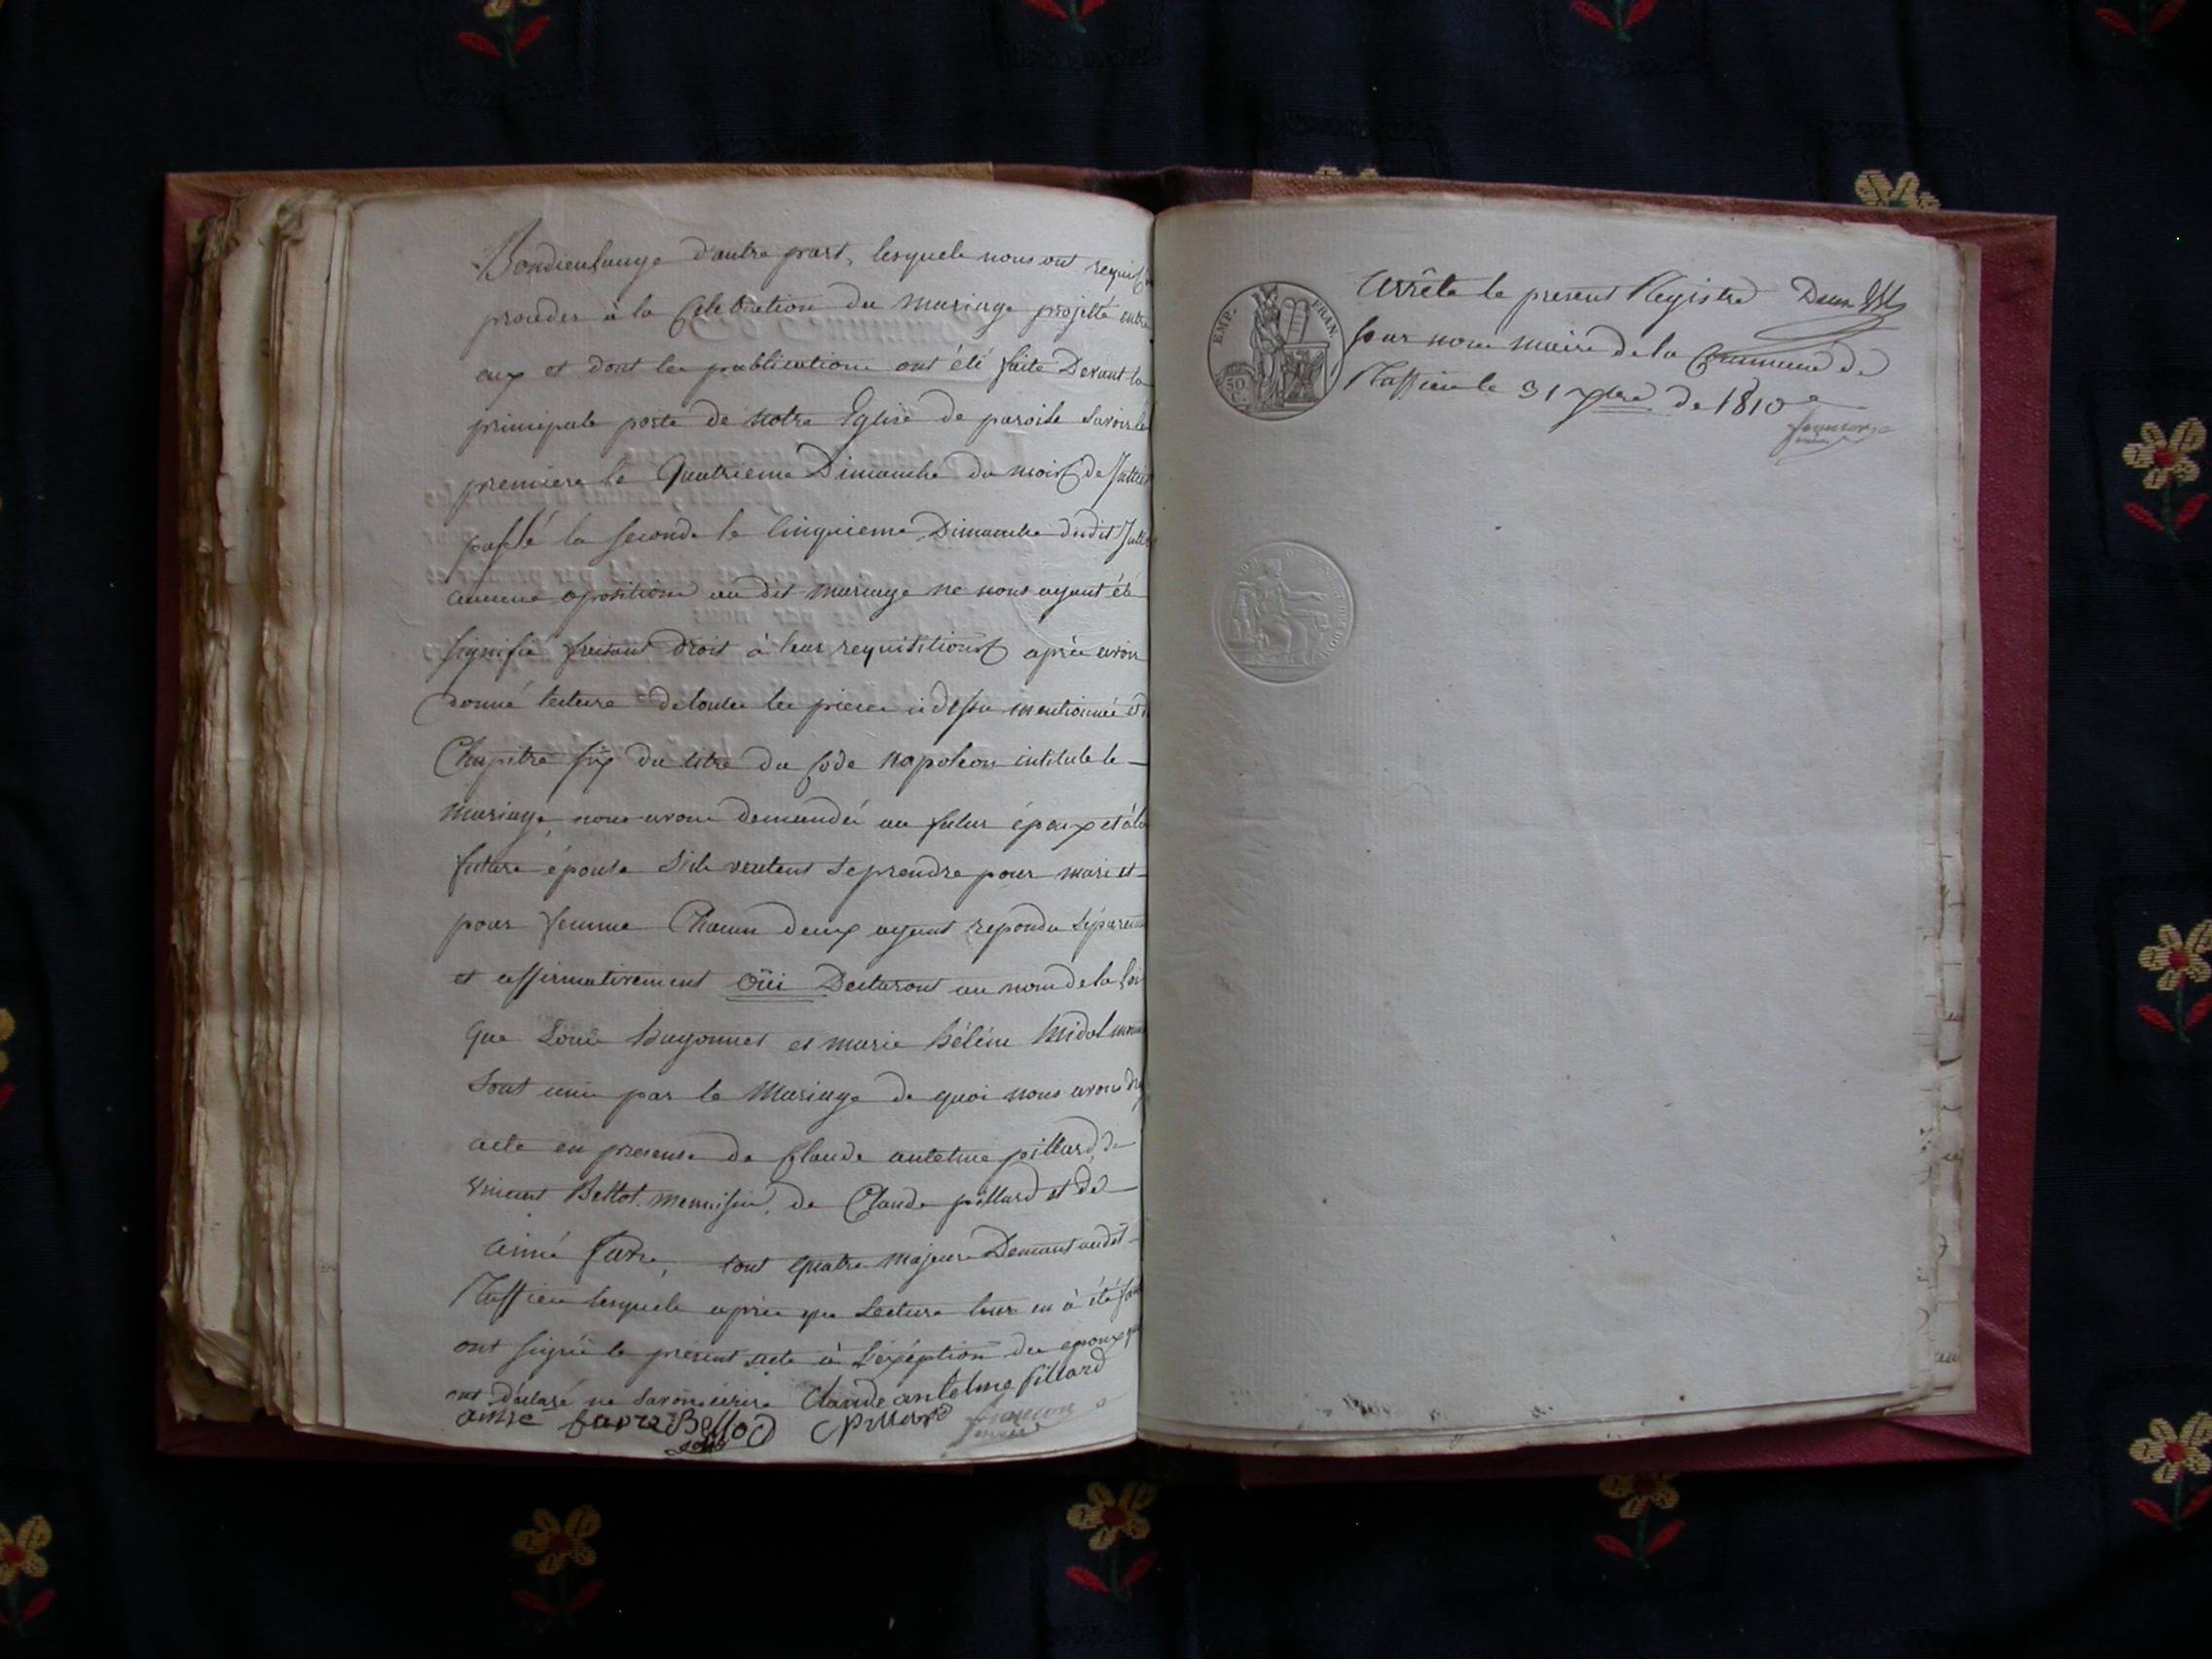 d'autre part, lesquels nous ont requis
proceder à la Celebration du mariage projetté entre
eux et dont les publications ont été faite Devant la
principale porte de notre Eglise de paroisse savoir la
premiere le quatrieme Dimanche du mois de Juillet
passé la seconde le Cinquieme Dimanche dudit Juillet
aucune oposition au dit mariage ne nous ayant été
signifié faisant droit à leur requisitions après avoir
donné lecture de toutes les pieces ci dessus mentionnée et du
Chapitre six du titre du Code Napoléon intitulé le
mariage, nous avons demandés au futur époux et à la
future épouse s'ils veulent se prendre pour mari et
pour femme Chacun deux ayant repondu séparement
et affirmativement Oüi Declarons au nom de la loi
que Louis et marie héléne
sont unis par le Mariage de quoi nous avons
acte en presense de Claude antelme pillard, de
vincent Bellod menuisier, de Claude pillard et de
Aimé favre, tout quatre majeurs Demeurant audit
Ruffieu lesquels après que Lecture leur en à été fait
ont signés le présent acte à l'exéption des epoux qui
ont déclaré ne savoir écrire Claude antelme pillard
aime favre Bellod C pillard
EMP. FRAN.
50 C.
Arrêté le present Registre
par nous maire de la Commune de
Ruffieu le 31 Xbre de 1810